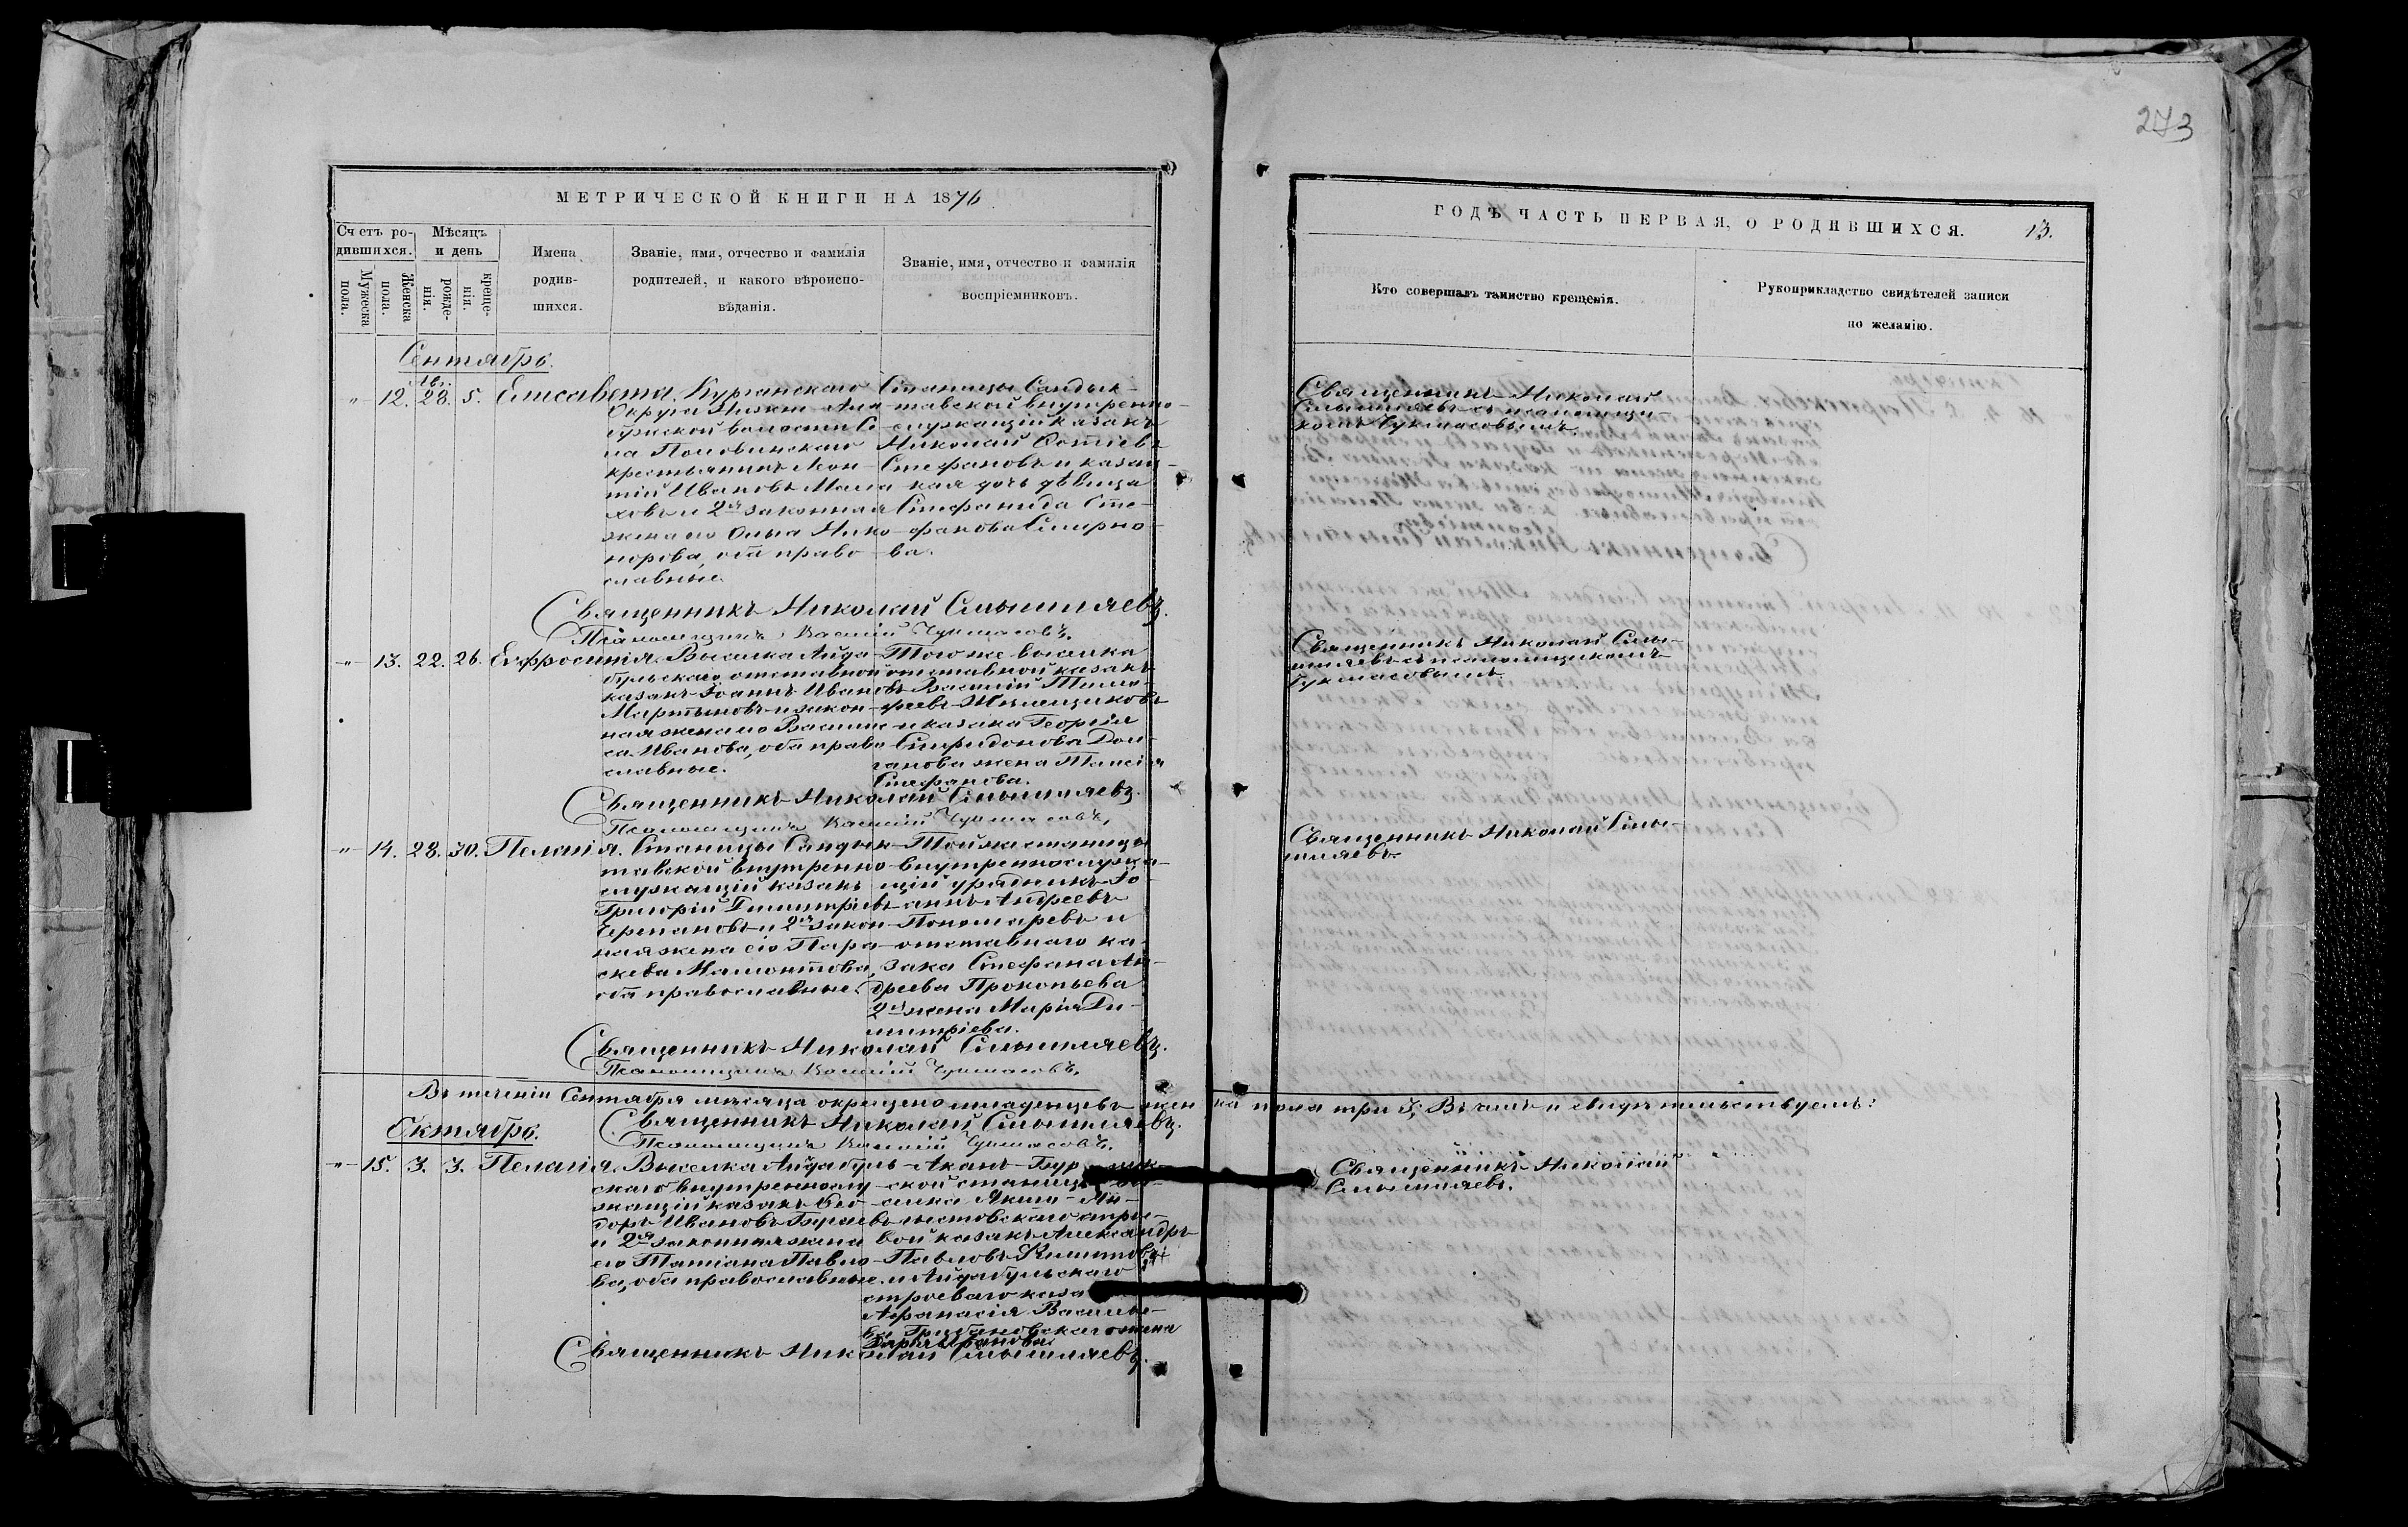 273
МЕТРИЧЕСКОЙ КНИГИ НА 1876
ГОДЪ ЧАСТЬ ПЕРВАЯ, О РОДИВШИХСЯ. 13.
Счетъ ро-
дившихся.
Мужеска
пола.
Женска
пола.
Мѣсяцъ
и день
рожде-
нія.
креще-
нія.
Имена
родив-
шихся.
Званіе, имя, отчество и фамилія
родителей, и какого вѣроиспо-
вѣданія.
Званіе, имя, отчество и фамилія
воспріемниковъ.
Кто совершалъ таинство крещенія.
Рукоприкладство свидѣтелей записи
по желанію.
Сентябрь.
" 12. 28. 5. Елисавета.
Курганскаго
Округа
волости Се
ла Половинскаго
крестьянинъ Леон-
тій Ивановъ Мала
ховъ и 2я законная
жена его Ольга Нико-
норова, оба право-
славные.
Станицы Сандык-
тавской внутренно-
служащій казакъ
Николай
Стефановъ и казач-
кая дочь дѣвица
Стефанида Сте-
фанова Смирно-
ва.
Священникъ Николай
съ псаломщи-
комъ
Священникъ Николай
Псаломщикъ Василій
" 13. 22. 26. Евфросинія.
Выселка Айда-
бульскаго отставной
казакъ Іоаннъ Ивановъ
Мартыновъ и закон-
ная жена его Васили-
са Иванова, оба право-
славные.
Того же выселка
отставной казакъ
Василій Тимо-
феевъ
и казака Георгія
Спиридонова Дол-
ганова жена Таисія
Стефанова.
Священникъ Николай
съ псаломщикомъ
Священникъ Николай
Псаломщикъ Василій
" 14. 28. 30. Пелагія.
Станицы Сандык-
тавской внутренно-
служащій казакъ
Григорій Димитріевъ
Черепановъ и 2я закон-
ная жена его Пара-
скева Мамонтова,
оба православные.
Той же станицы
внутреннослужа-
щій урядникъ Іо-
аннъ Андреевъ
Пономаревъ и
отставнаго ка-
зака Стефана Ан-
дреева Прокопьева
2я жена Марія Ди-
митріева.
Священникъ Николай
Священникъ Николай
Псаломщикъ Василій
Въ теченіи Сентября мѣсяца окрещено младенцевъ жен ка пола три 3; Въ чемъ и свидѣтельствуемъ:
Священникъ Николай
Псаломщикъ Василій
Октябрь.
" 15. 3. 3. Пелагія.
Выселка Айдабуль-
скаго внутреннослу-
жащій казакъ Ѳео-
доръ Ивановъ
и 2я законная жена
его Татіана Павло-
ва, оба православные.
Аканъ-Бур
ской станицы
селка
строе-
вой казакъ Александръ
Павловъ
и Айдабульскаго
строеваго каза
Афанасія Василье-
ва жена
Дарья Иванова.
Священникъ Николай
Священникъ Николай